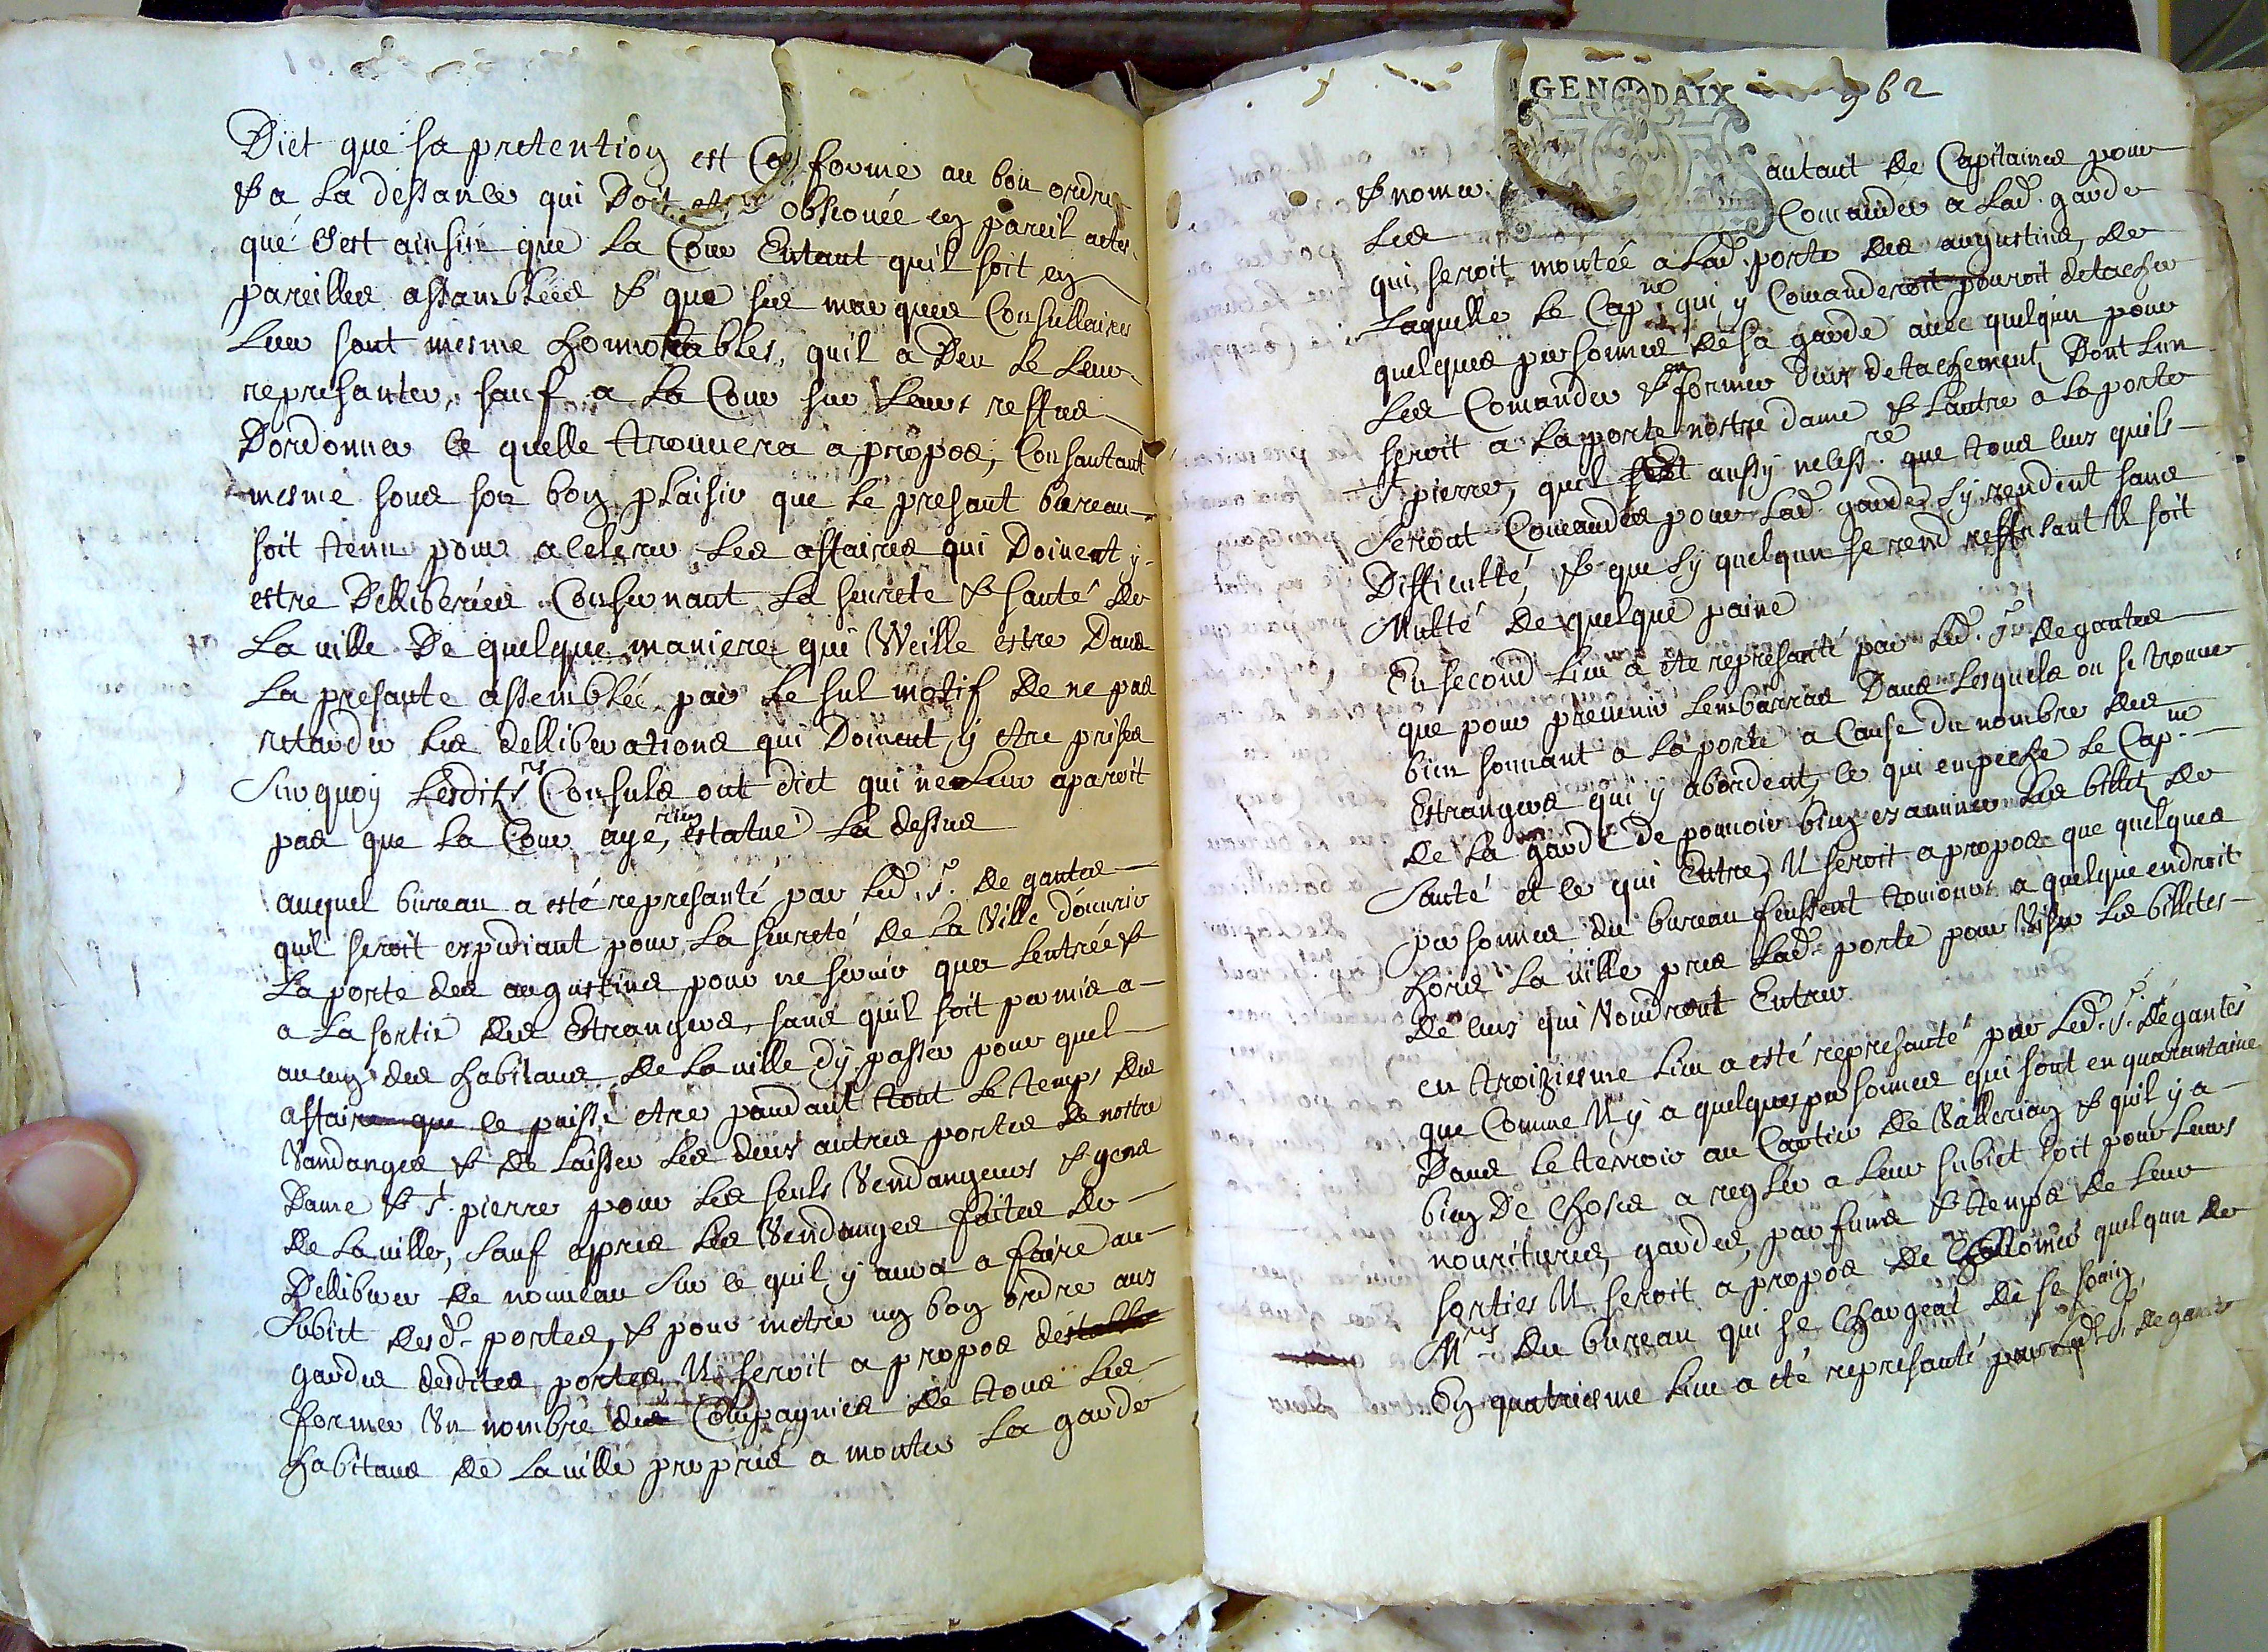 Dict que sa pretention est conforme au bon ordre
& a la dessance qui Doit estre observée en pareil actes
que sest ainsin que la Cour Entant quil soit en
pareilles assamblées & que ses marques Consullaires
leur sont mesme honnorables, quil a Deu le leur
represanter, sauf a la Cour sur leurs reffus
Dordonner ce quelle trouvera a propos, Consantant
mesme sous son bon plaisir que le presant bureau
soit tenu pour acelerer les affaires qui Doivent y
estre Delliberées Consernant la seureté & santé de
La ville De quelque maniere qui Veille estre Dans
La presante assemblée par le sul motif de ne pas
retarder les delliberations qui Doivent y etre prises
Sur quoy lesdits srs Consuls ont dict qui ne leur aparoit
pas que la Cour aye rien estatué la dessus
auquel bureau a esté represanté par led. sr. de gantes
quil seroit expediant pour la seureté de la Ville douvrir
La porte des augustins pour ne servir que lentrée &
a la sortie des Estrangers, sans quil soit permis a
aucun des habitans de la ville dy passer pour quel
affaire que ce puisse etre pandant tout le temps des
Vandanges & de laisser les deux autres portes de nostre
Dame & st. pierre pour les seuls Vendangeurs & gens
de la ville, sauf apres les Vendanges faites de
Delliberer de nouveau sur ce quil y aura a faire au
Subict desd. portes, & pour metre un bon ordre aux
gardes desdites portes, Il seroit a propos destablir
former Un nombre des Compagnies de tous les
habitans de la ville propres a monter la garde
GEN DAIX
962
& nomer autant de Capitaines pour
les Comander a lad. garde
qui seroit montée a lad. porte des augustins, de
Laquelle le Capne qui y Comanderoit pouroit detacher
quelques personnes de sa garde avec quelquin pour
les Comander & en former deux detachement, Dont lun
seroit a la porte nostre dame & lautre a la porte
St pierre, quel est aussy necessre que tous ceux quils
Seront Comandés pour lad. garde sy rendent sans
Difficulté, & que sy quelqun se rend reffusant Il soit
Multé de quelque paine
En second lieu a été represanté par led. sr de gantes
que pour prevenir lembarras Dans lesquels on se trouve
bien souvant a la porte a Cause du nombre des
Estrangers qui y abordent, ce qui empeche le Capne
de la garde de pouvoir bien examiner les billets de
Santé et ce qui Entre, Il seroit a propos que quelques
personnes du bureau feussent toujours a quelque endroit
hors la ville pres lad. porte pour Viser les billetes
de ceux qui Voudront Entrer
en troiziesme lieu a esté represanté par led. sr. de gantes
que Comme Il y a quelques personnes qui sont en quarantaine
Dans le terroir au Cartier de Vallerian & quil y a
bien de choses a regler a leur subict soit pour leurs
nouritures, gardes, parfums & temps de leur
sorties Il seroit a propos de nomer quelqun de
Mrs du bureau qui se chargeat de se soin
En quatriesme lieu a été represanté par led. sr de gantes